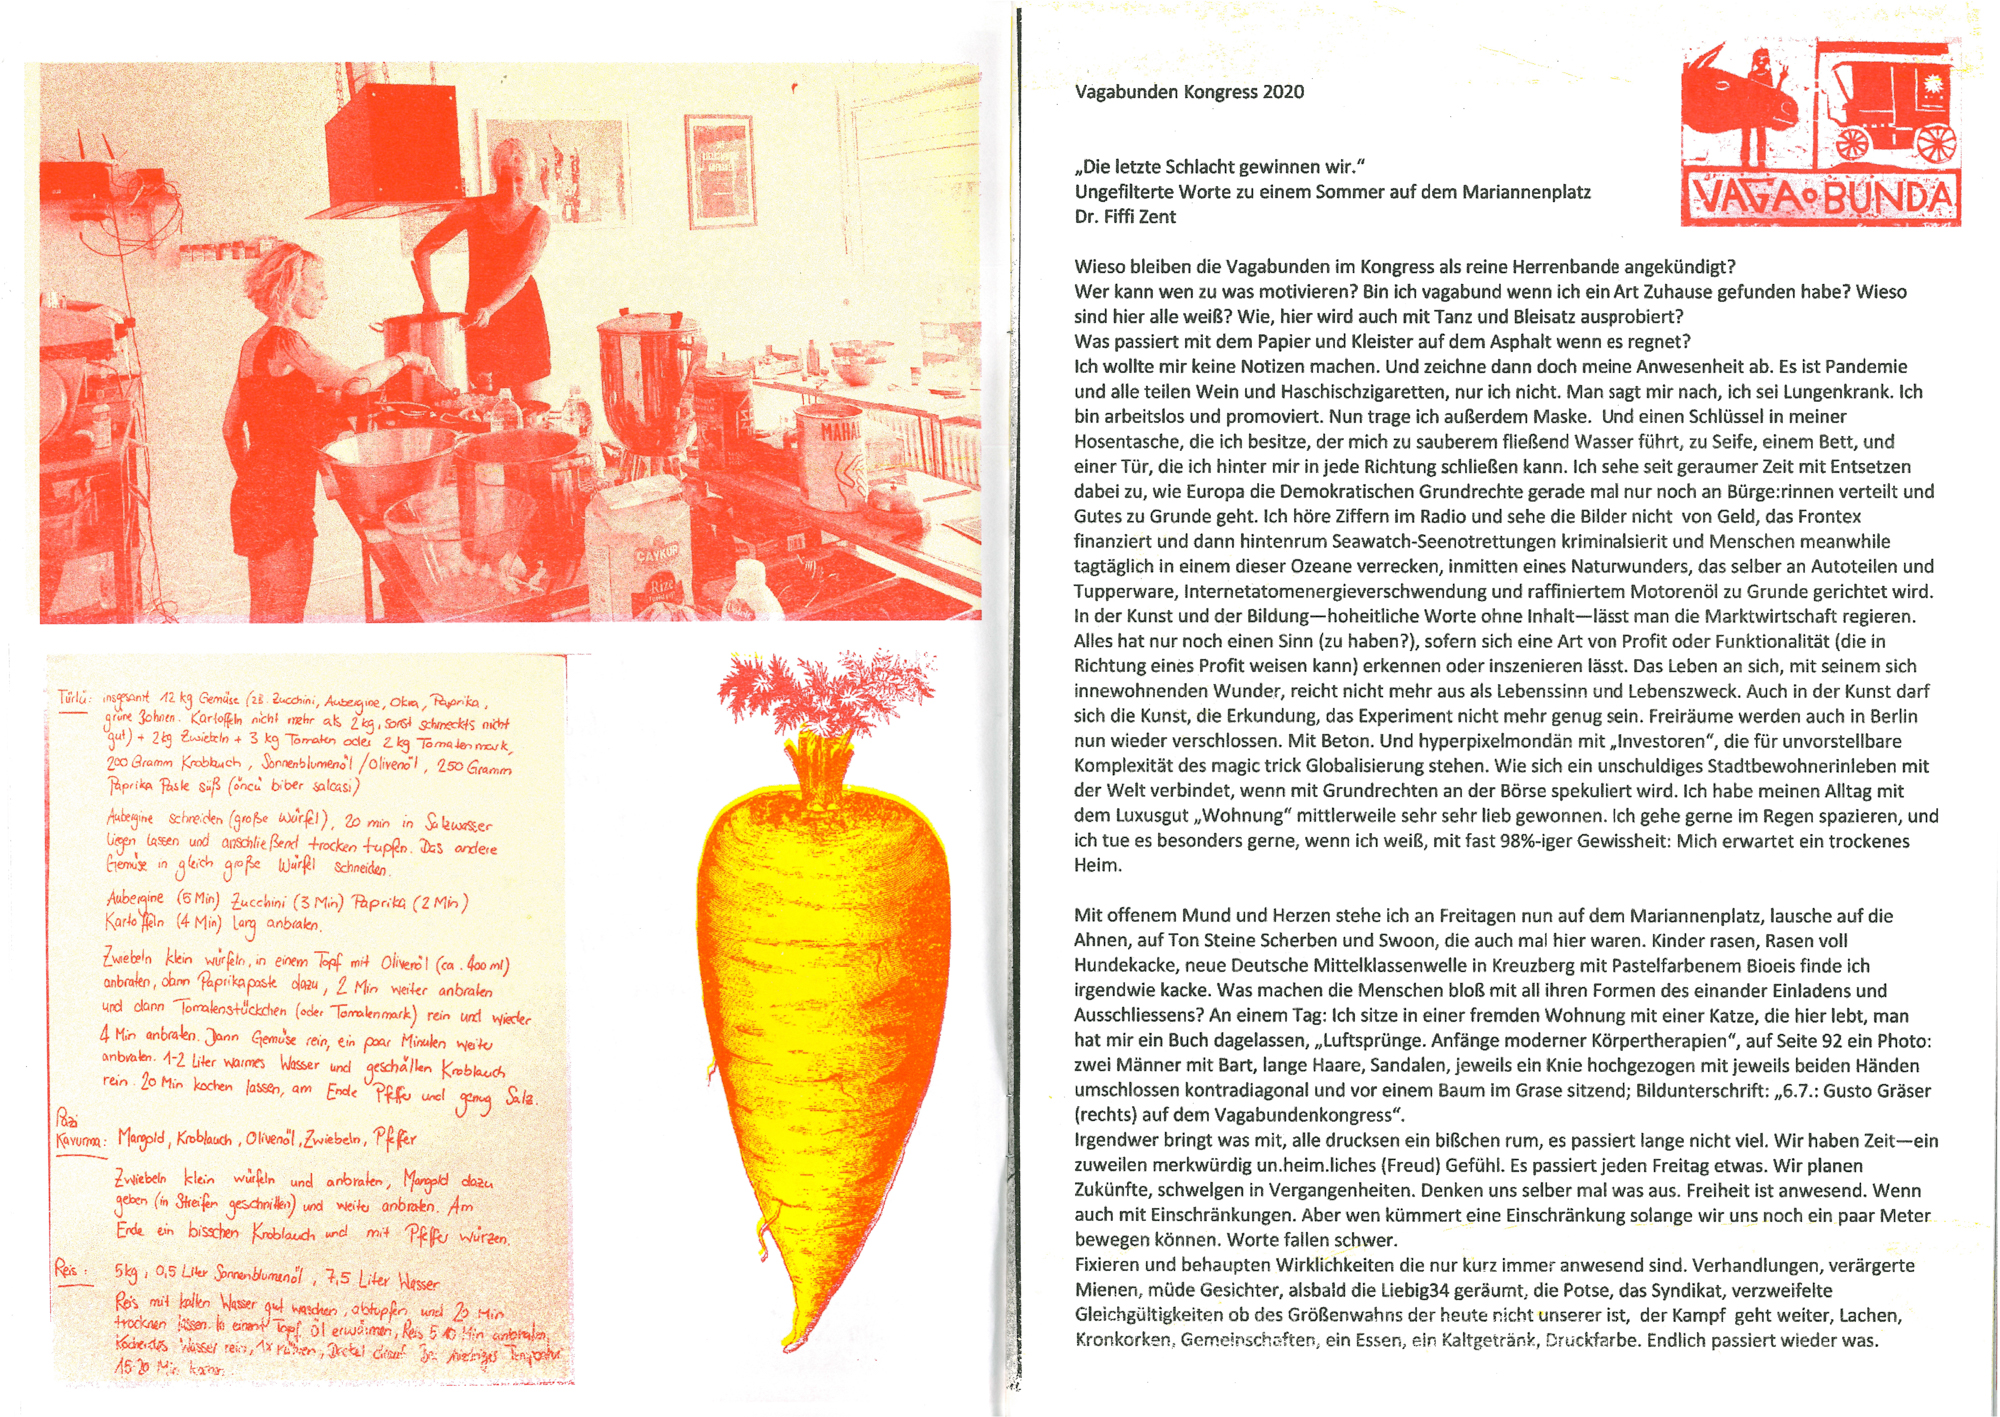 MAHAL
CAYKUR
Rize
Türlü: insgesamt 12 kg Gemüse (z.B. Zucchini, Aubergine, Okra, Paprika,
grüne Bohnen. Kartoffeln nicht mehr als 2 kg, sonst schmeckts nicht
gut) + 2 kg Zwiebeln + 3 kg Tomaten oder 2 kg Tomatenmark,
200 Gramm Knoblauch, Sonnenblumenöl / Olivenöl, 250 Gramm
Paprika Paste süß (öncü biber salcasi)
Aubergine schneiden (große Würfel), 20 min in Salzwasser
liegen lassen und anschließend trocken tupfen. Das andere
Gemüse in gleich große Würfel schneiden.
Aubergine (5 Min) Zucchini (3 Min) Paprika (2 Min)
Kartoffeln (4 Min) lang anbraten.
Zwiebeln klein würfeln, in einem Topf mit Olivenöl (ca. 400 ml)
anbraten, dann Paprikapaste dazu, 2 Min weiter anbraten
und dann Tomatenstückchen (oder Tomatenmark) rein und wieder
4 Min anbraten. Dann Gemüse rein, ein paar Minuten weiter
anbraten. 1-2 Liter warmes Wasser und geschälten Knoblauch
rein. 20 Min kochen lassen, am Ende Pfeffer und genug Salz.
Pazi
Kavurma: Mangold, Knoblauch, Olivenöl, Zwiebeln, Pfeffer
Zwiebeln klein würfeln und anbraten, Mangold dazu
geben (in Streifen geschnitten) und weiter anbraten. Am
Ende ein bisschen Knoblauch und mit Pfeffer würzen.
Reis: 5kg, 0,5 Liter Sonnenblumenöl, 7,5 Liter Wasser
Reis mit kalten Wasser gut waschen, abtupfen und 20 Min
trocknen lassen. In einem Topf Öl erwärmen, Reis 5-10 Min anbraten,
Kochendes Wasser rein, 1x rühren, Deckel drauf. Bei niedriger Temperatur
15-20 Min
Vagabunden Kongress 2020
VAGABUNDA
„Die letzte Schlacht gewinnen wir.“
Ungefilterte Worte zu einem Sommer auf dem Mariannenplatz
Dr. Fiffi Zent
Wieso bleiben die Vagabunden im Kongress als reine Herrenbande angekündigt?
Wer kann wen zu was motivieren? Bin ich vagabund wenn ich ein Art Zuhause gefunden habe? Wieso
sind hier alle weiß? Wie, hier wird auch mit Tanz und Bleisatz ausprobiert?
Was passiert mit dem Papier und Kleister auf dem Asphalt wenn es regnet?
Ich wollte mir keine Notizen machen. Und zeichne dann doch meine Anwesenheit ab. Es ist Pandemie
und alle teilen Wein und Haschischzigaretten, nur ich nicht. Man sagt mir nach, ich sei Lungenkrank. Ich
bin arbeitslos und promoviert. Nun trage ich außerdem Maske. Und einen Schlüssel in meiner
Hosentasche, die ich besitze, der mich zu sauberem fließend Wasser führt, zu Seife, einem Bett, und
einer Tür, die ich hinter mir in jede Richtung schließen kann. Ich sehe seit geraumer Zeit mit Entsetzen
dabei zu, wie Europa die Demokratischen Grundrechte gerade mal nur noch an Bürge:rinnen verteilt und
Gutes zu Grunde geht. Ich höre Ziffern im Radio und sehe die Bilder nicht von Geld, das Frontex
finanziert und dann hintenrum Seawatch-Seenotrettungen kriminalsierit und Menschen meanwhile
tagtäglich in einem dieser Ozeane verrecken, inmitten eines Naturwunders, das selber an Autoteilen und
Tupperware, Internetatomenergieverschwendung und raffiniertem Motorenöl zu Grunde gerichtet wird.
In der Kunst und der Bildung—hoheitliche Worte ohne Inhalt—lässt man die Marktwirtschaft regieren.
Alles hat nur noch einen Sinn (zu haben?), sofern sich eine Art von Profit oder Funktionalität (die in
Richtung eines Profit weisen kann) erkennen oder inszenieren lässt. Das Leben an sich, mit seinem sich
innewohnenden Wunder, reicht nicht mehr aus als Lebenssinn und Lebenszweck. Auch in der Kunst darf
sich die Kunst, die Erkundung, das Experiment nicht mehr genug sein. Freiräume werden auch in Berlin
nun wieder verschlossen. Mit Beton. Und hyperpixelmondän mit „Investoren“, die für unvorstellbare
Komplexität des magic trick Globalisierung stehen. Wie sich ein unschuldiges Stadtbewohnerinleben mit
der Welt verbindet, wenn mit Grundrechten an der Börse spekuliert wird. Ich habe meinen Alltag mit
dem Luxusgut „Wohnung“ mittlerweile sehr sehr lieb gewonnen. Ich gehe gerne im Regen spazieren, und
ich tue es besonders gerne, wenn ich weiß, mit fast 98%-iger Gewissheit: Mich erwartet ein trockenes
Heim.
Mit offenem Mund und Herzen stehe ich an Freitagen nun auf dem Mariannenplatz, lausche auf die
Ahnen, auf Ton Steine Scherben und Swoon, die auch mal hier waren. Kinder rasen, Rasen voll
Hundekacke, neue Deutsche Mittelklassenwelle in Kreuzberg mit Pastelfarbenem Bioeis finde ich
irgendwie kacke. Was machen die Menschen bloß mit all ihren Formen des einander Einladens und
Ausschliessens? An einem Tag: Ich sitze in einer fremden Wohnung mit einer Katze, die hier lebt, man
hat mir ein Buch dagelassen, „Luftsprünge. Anfänge moderner Körpertherapien“, auf Seite 92 ein Photo:
zwei Männer mit Bart, lange Haare, Sandalen, jeweils ein Knie hochgezogen mit jeweils beiden Händen
umschlossen kontradiagonal und vor einem Baum im Grase sitzend; Bildunterschrift: „6.7.: Gusto Gräser
(rechts) auf dem Vagabundenkongress“.
Irgendwer bringt was mit, alle drucksen ein bißchen rum, es passiert lange nicht viel. Wir haben Zeit—ein
zuweilen merkwürdig un.heim.liches (Freud) Gefühl. Es passiert jeden Freitag etwas. Wir planen
Zukünfte, schwelgen in Vergangenheiten. Denken uns selber mal was aus. Freiheit ist anwesend. Wenn
auch mit Einschränkungen. Aber wen kümmert eine Einschränkung solange wir uns noch ein paar Meter
bewegen können. Worte fallen schwer.
Fixieren und behaupten Wirklichkeiten die nur kurz immer anwesend sind. Verhandlungen, verärgerte
Mienen, müde Gesichter, alsbald die Liebig34 geräumt, die Potse, das Syndikat, verzweifelte
Gleichgültigkeiten ob des Größenwahns der heute nicht unserer ist, der Kampf geht weiter, Lachen,
Kronkorken, Gemeinschaften, ein Essen, ein Kaltgetränk, Druckfarbe. Endlich passiert wieder was.